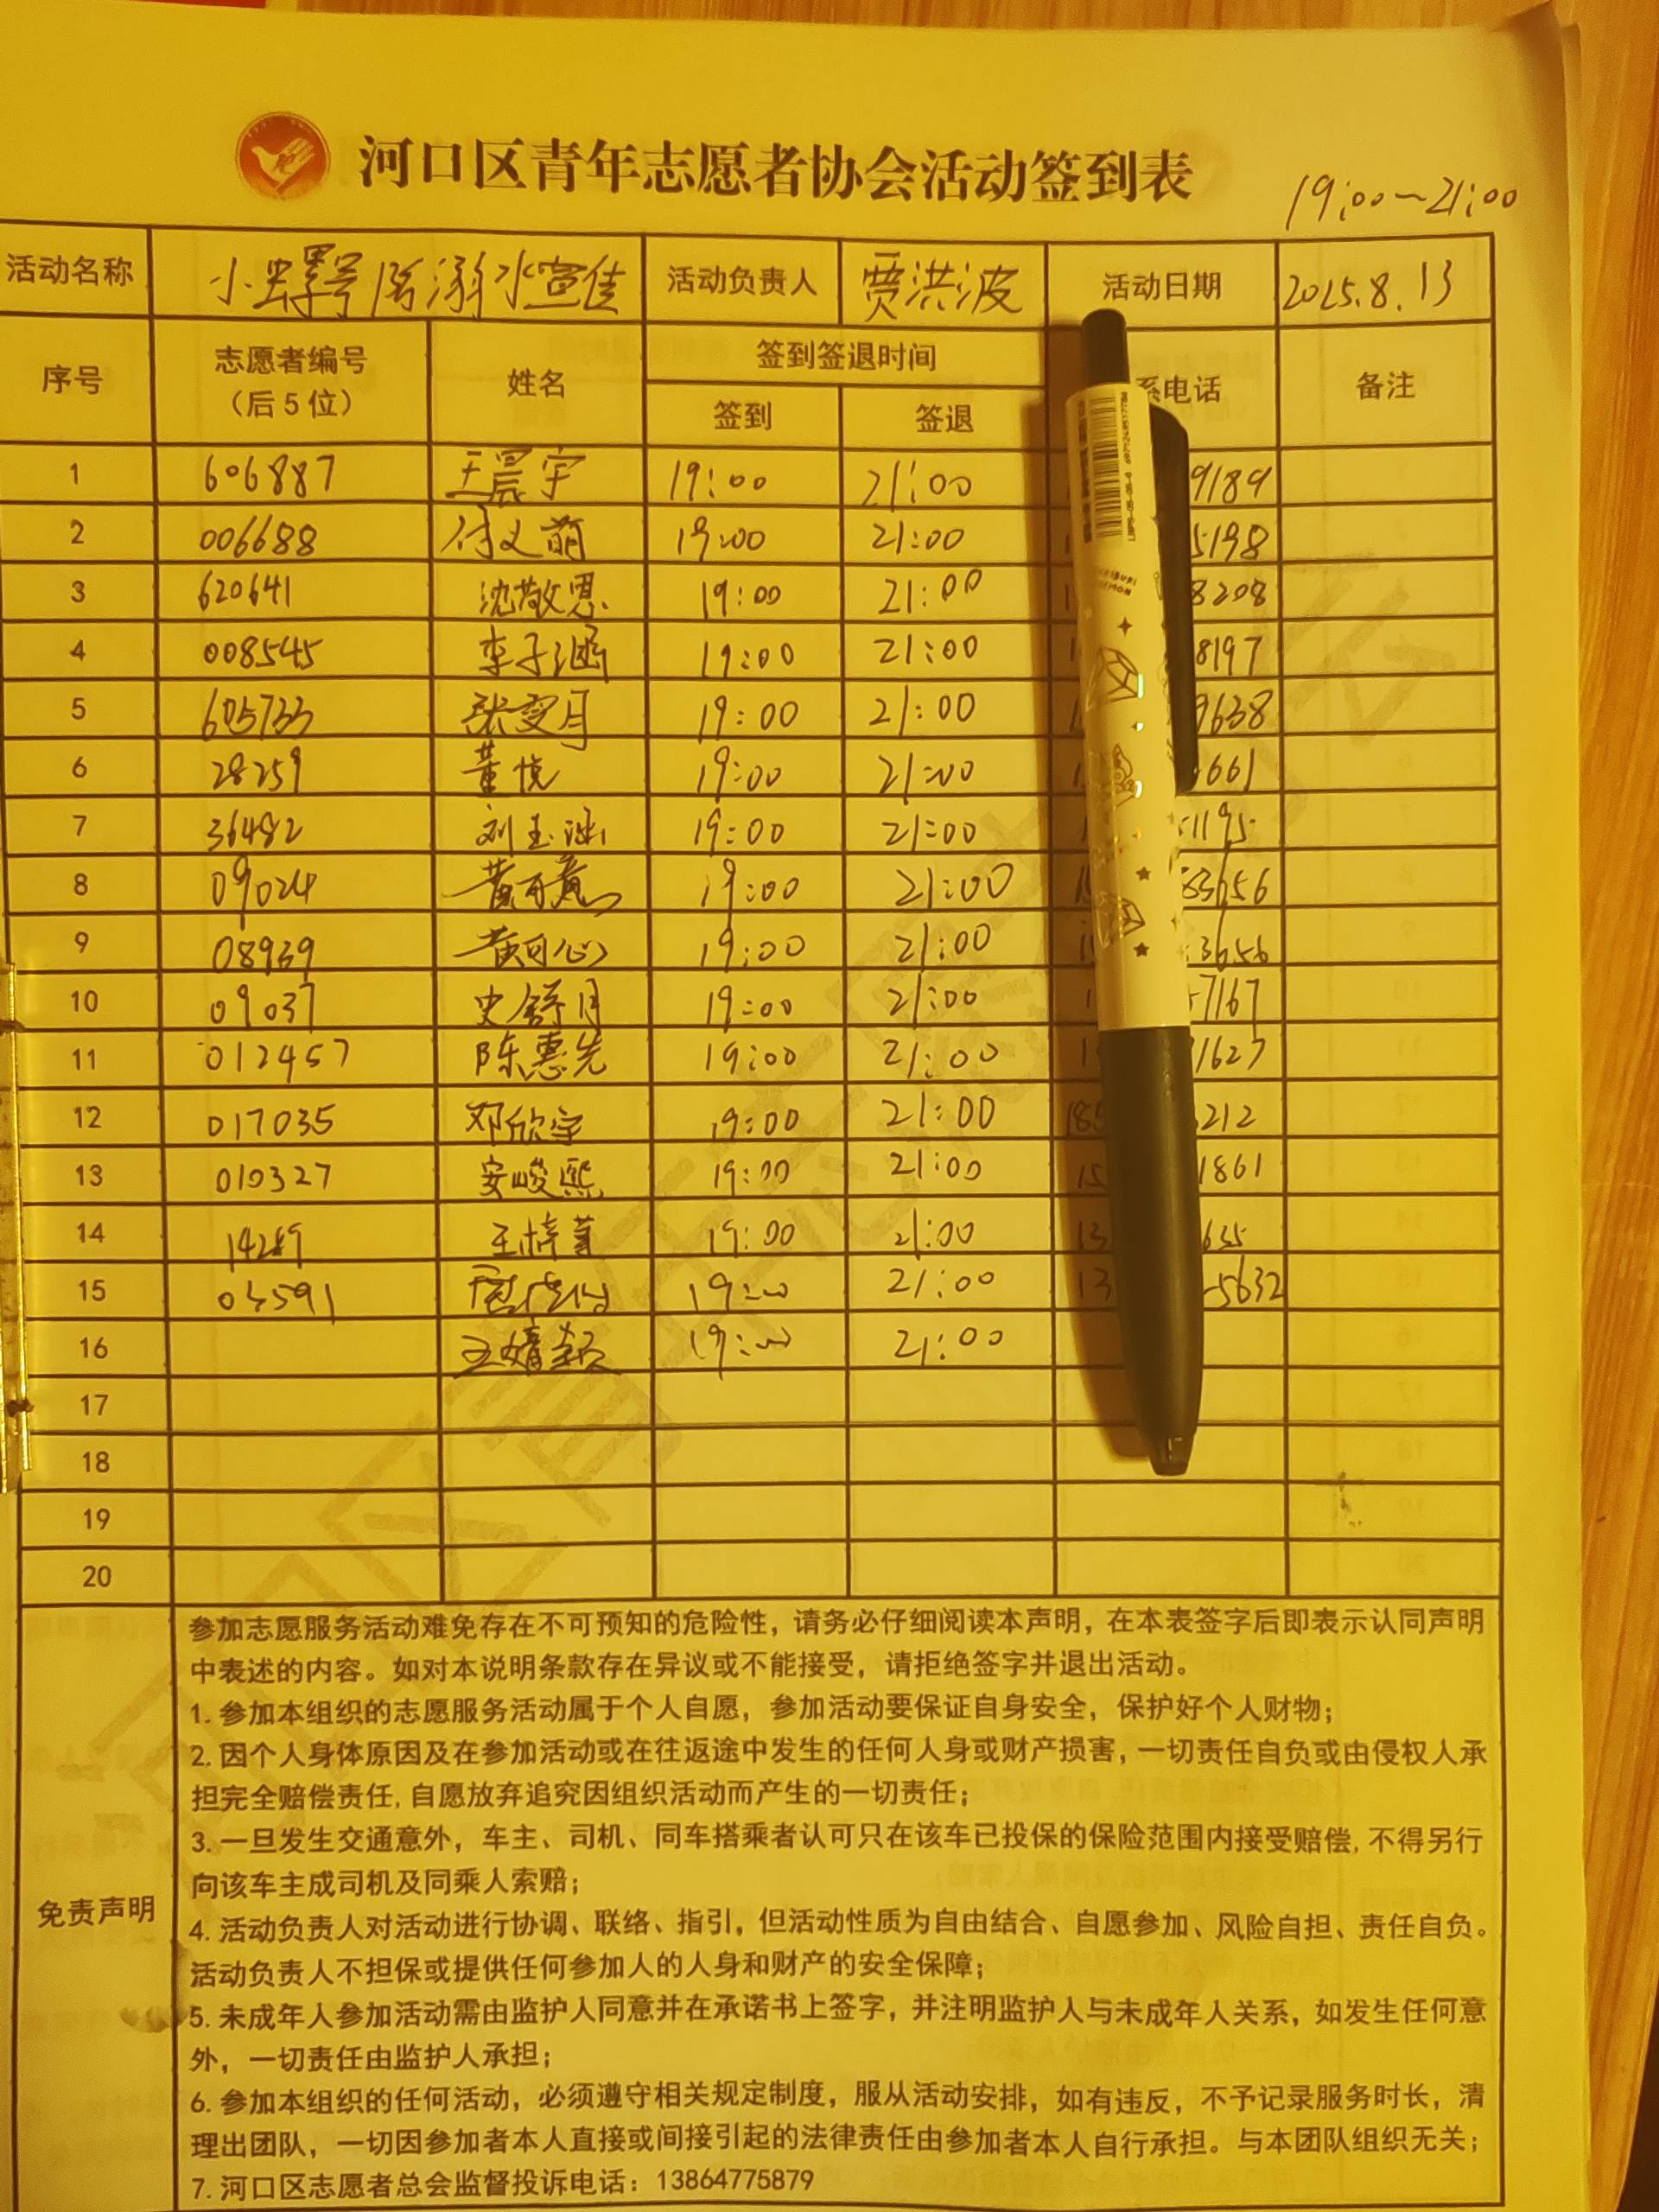 河口区青年志愿者协会活动签到表
19:00~21:00
活动名称 防溺水宣传 活动负责人 贾洪波 活动日期 2025.8.13
序号 志愿者编号（后5位） 姓名 签到签退时间 系电话 备注
签到 签退
1 606887 王晨宇 19:00 21:00 9189
2 006688 付文萌 19:00 21:00 5198
3 620641 沈敬恩 19:00 21:00 8208
4 008545 李子涵 19:00 21:00 8197
5 605733 张雯月 19:00 21:00 9638
6 28259 董悦 19:00 21:00 661
7 36482 刘玉涵 19:00 21:00 1195
8 09024 黄可意 19:00 21:00 83656
9 08939 黄可心 19:00 21:00 3656
10 09037 史舒月 19:00 21:00 7167
11 012457 陈惠先 19:00 21:00 1627
12 017035 邓欣宇 19:00 21:00 185 212
13 010327 安峻熙 19:00 21:00 15 1861
14 王梓萱 19:00 21:00 13 635
15 03591 19:00 21:00 13 5632
16 王婧颖 19:00 21:00
17
18
19
20
免责声明
参加志愿服务活动难免存在不可预知的危险性，请务必仔细阅读本声明，在本表签字后即表示认同声明
中表述的内容。如对本说明条款存在异议或不能接受，请拒绝签字并退出活动。
1.参加本组织的志愿服务活动属于个人自愿，参加活动要保证自身安全，保护好个人财物；
2.因个人身体原因及在参加活动或在往返途中发生的任何人身或财产损害，一切责任自负或由侵权人承
担完全赔偿责任,自愿放弃追究因组织活动而产生的一切责任；
3.一旦发生交通意外，车主、司机、同车搭乘者认可只在该车已投保的保险范围内接受赔偿,不得另行
向该车主成司机及同乘人索赔；
4.活动负责人对活动进行协调、联络、指引，但活动性质为自由结合、自愿参加、风险自担、责任自负。
活动负责人不担保或提供任何参加人的人身和财产的安全保障；
5.未成年人参加活动需由监护人同意并在承诺书上签字，并注明监护人与未成年人关系，如发生任何意
外，一切责任由监护人承担；
6.参加本组织的任何活动，必须遵守相关规定制度，服从活动安排，如有违反，不予记录服务时长，清
理出团队，一切因参加者本人直接或间接引起的法律责任由参加者本人自行承担。与本团队组织无关；
7.河口区志愿者总会监督投诉电话：13864775879